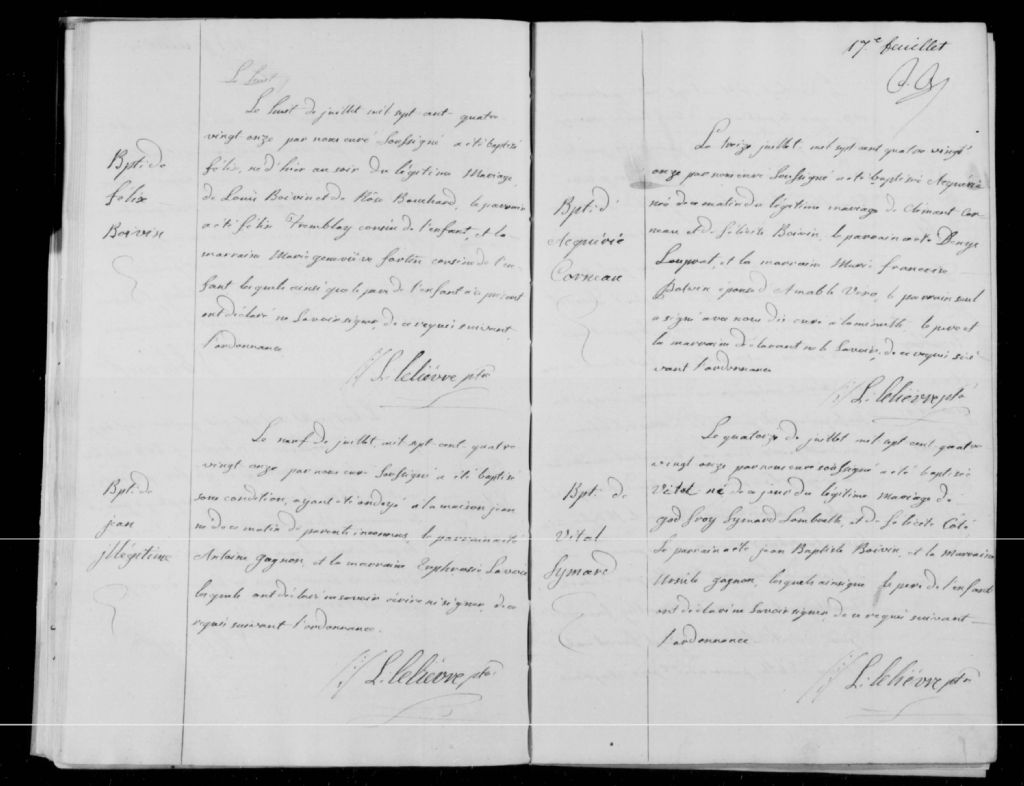 Le huit
Le huit de juillet mil sept cent quatre
vingt onze par nous curé soussigné a été baptisé
félix, né d'hier au soir du légitime Mariage
de Louis Boivin et de Rose Bouchard, le parrain
a été félix Tremblay cousin de l'enfant, et la
marraine Marie geneviève fortin cousine de l'en
fant lesquels ainsi que le père de l'enfant ici présent
ont déclaré ne savoir signer, de ce requis suivant
l'ordonnance
L. lelièvre ptre
Bpt. de
félix
Boivin
Le neuf de juillet, mil sept cent quatre
vingt onze par nous curé soussigné a été baptisé
sous condition, ayant été ondoyé à la maison jean
né de ce matin de parents inconnus, le parrain a été
Antoine gagnon, et la marraine Euphrosie
lesquels ont déclaré ne savoir écrire ni signer, de ce
requis suivant l'ordonnance.
L. lelièvre ptre
Bpt. de
jean
illégitime
17.e feuillet
Le treize juillet, mil sept cent quatre vingt
onze par nous curé soussigné a été baptisé
né de ce matin du légitime mariage de Clément Cor
neau et de félicité Boivin, le parrain a été Denys
et la marraine Marie françoise
Boivin épouse d'Amable le parrain seul
a signé avec nous dit curé à la minute, le père et
la marraine déclarant ne le savoir, de ce requis sui
vant l'ordonnance
L. lelièvre ptre
Bpt. d'
Corneau
Le quatorze de juillet mil sept cent quatre
vingt onze par nous curé soussigné a été baptisé
Vital né de ce jour du légitime mariage de
godfroy Symard Lombrette, et de félicité Côté
Le parrain a été jean Baptiste Boivin, et la Marraine
Ursule gagnon, lesquels ainsi que le père de l'enfant
ont déclaré ne savoir signer, de ce requis suivant
l'ordonnance.
L. lelièvre ptre
Bpt. de
Vital
Symard